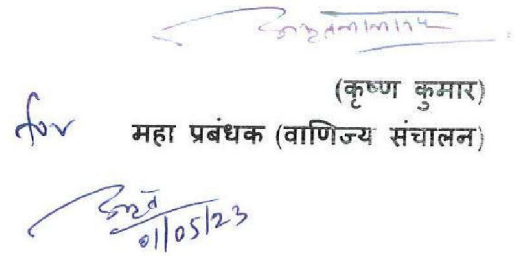 (कृष्ण कुमार)
for महा प्रबंधक (वाणिज्य संचालन)
01/05/23